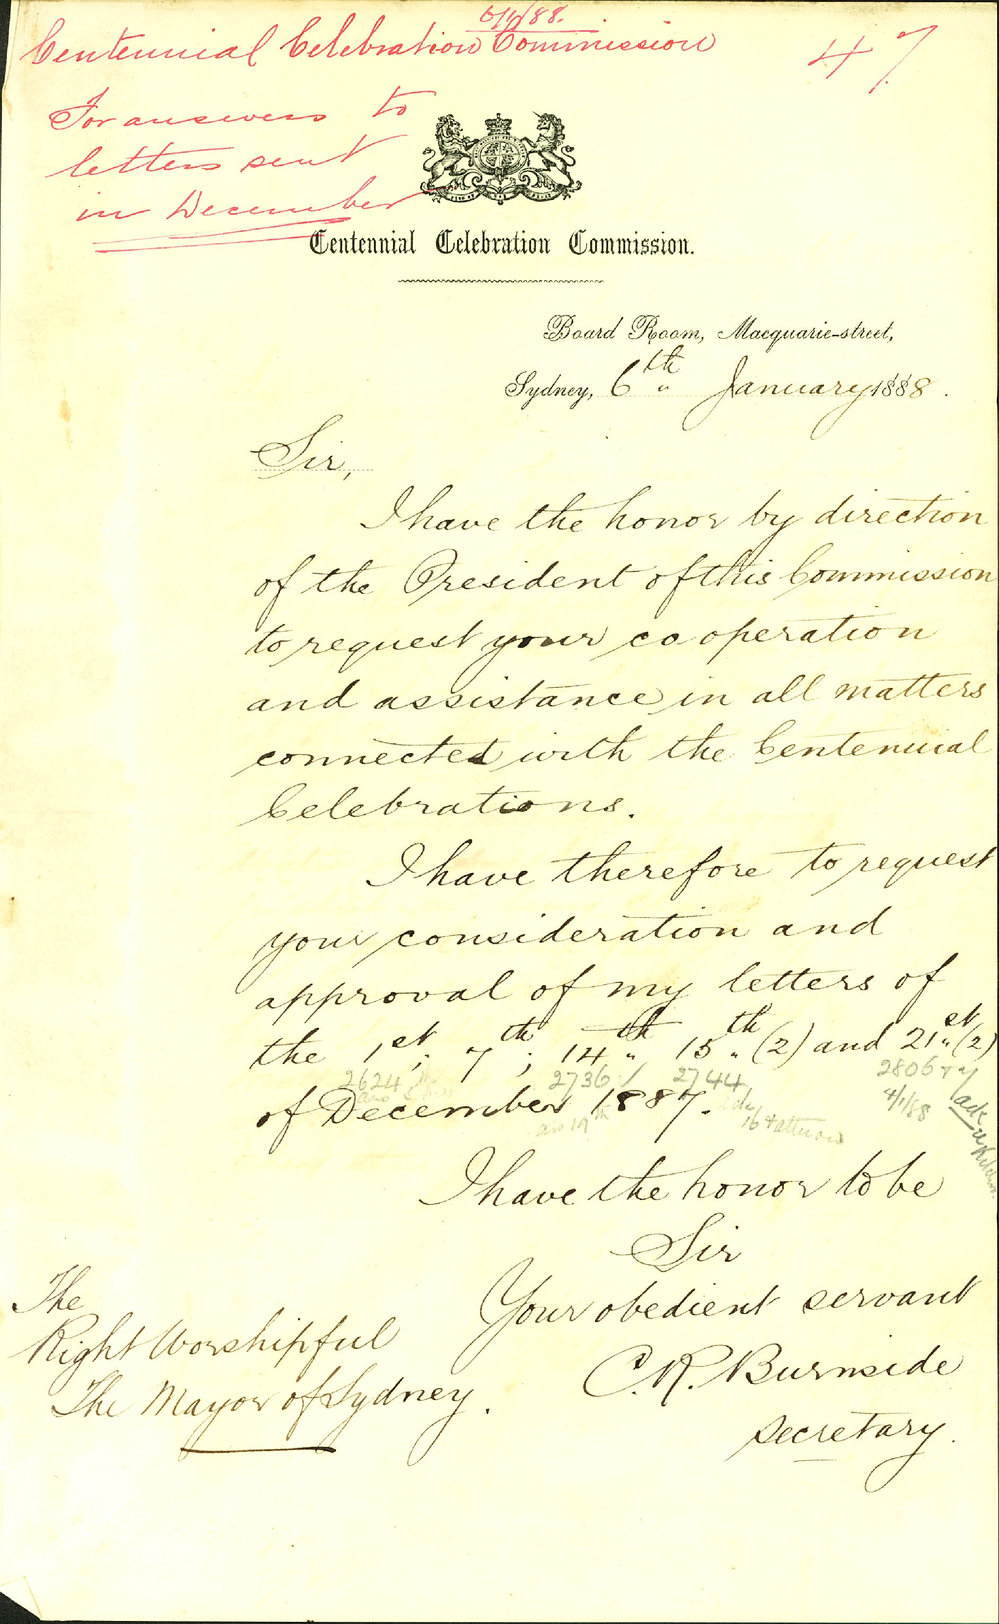 6/1/88.
Centennial Celebration Commission
47
For answers to
letters sent
in December
Centennial Celebration Commission.
Board Room, Macquarie-street,
Sydney, 6th January 1888.
Sir,
I have the honor by direction
of the President of this Commission
to request your co operation
and assistance in all matters
connected with the Centennial
Celebrations.
I have therefore to request
your consideration and
approval of my letters of
the 1st; 7th; 14th 15th (2) and 21st (2)
2624 2736 2744 2806
of December 1887.
4/1/88
ans 19th
I have the honor to be
Sir
Your obedient servant
C. R. Burnside
Secretary.
The
Right Worshipful
The Mayor of Sydney.